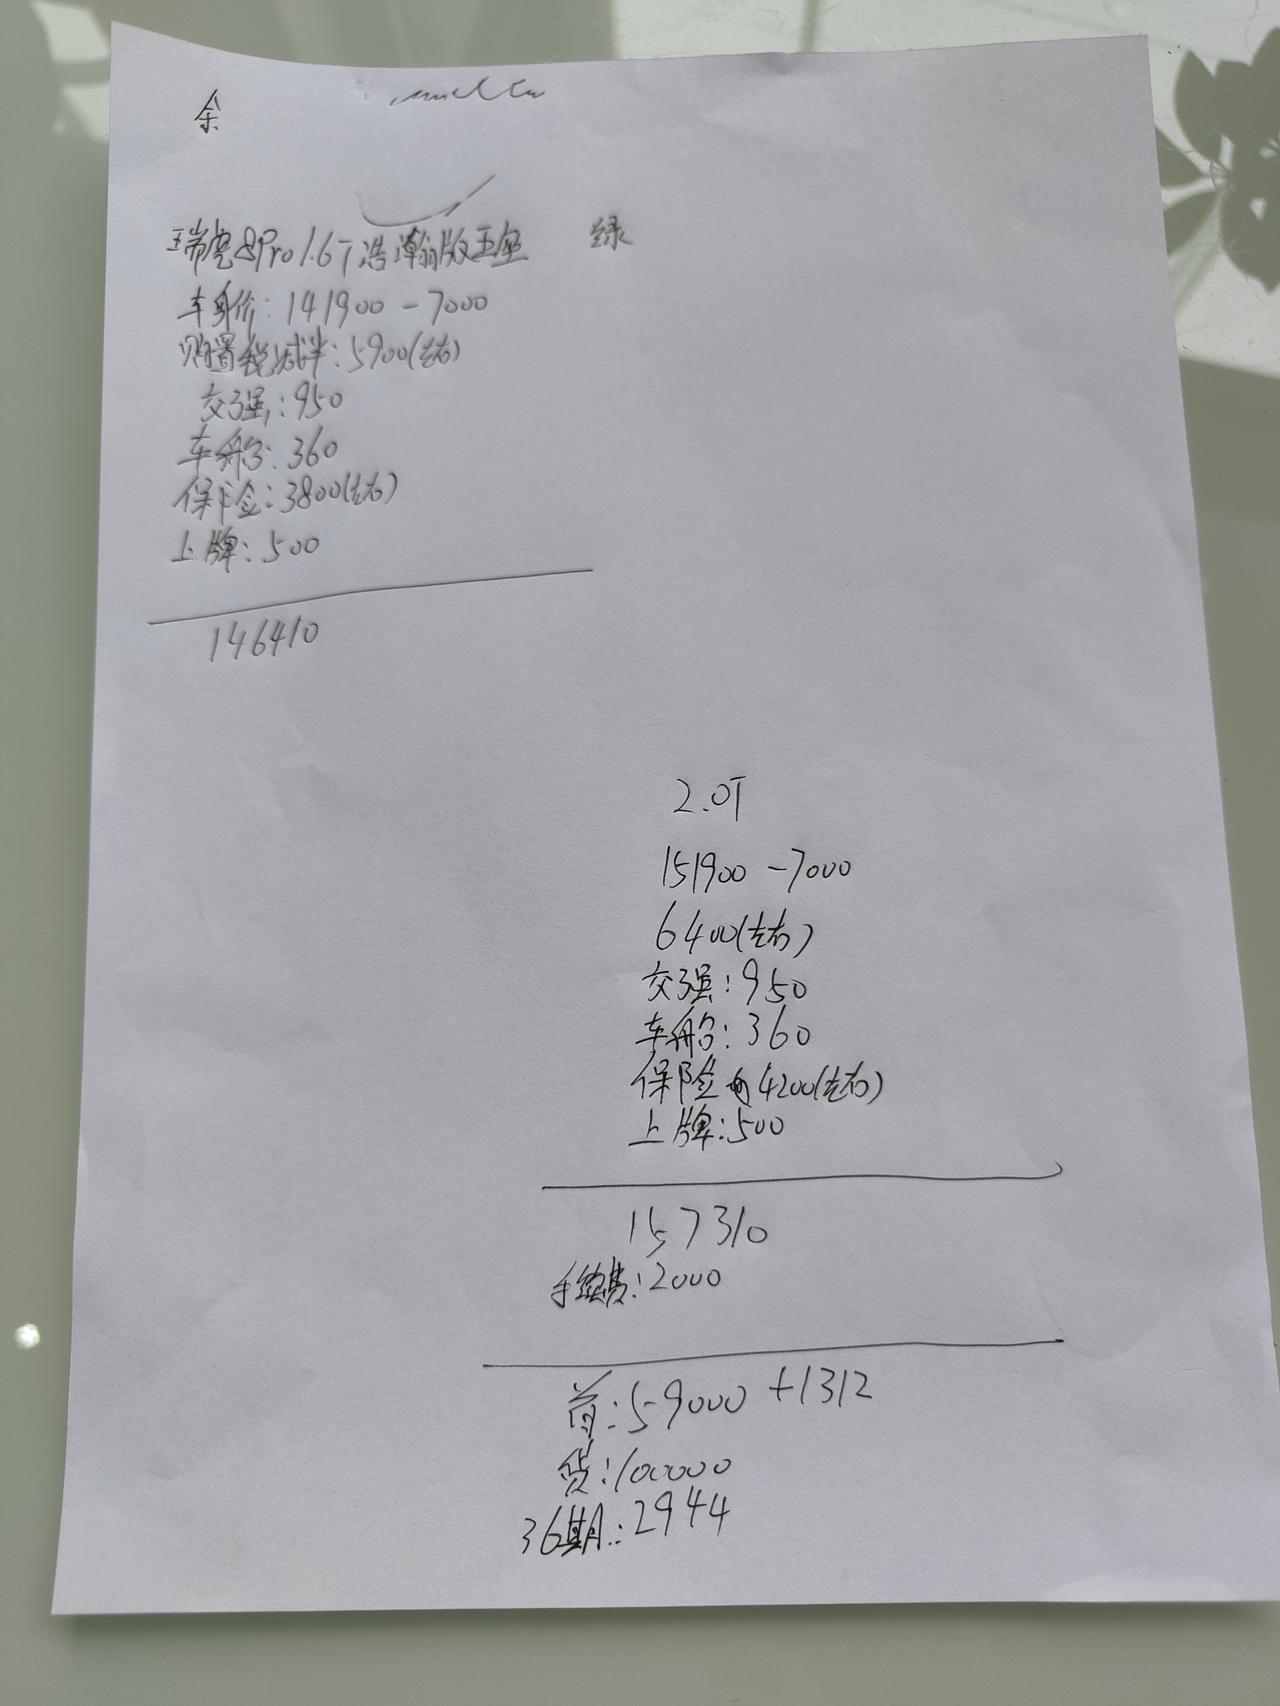 余
瑞虎8Pro 1.6T浩瀚版五座 绿
车身价：141900-7000
购置税减半：5900(左右)
交强：950
车船：360
保险：3800(左右)
上牌：500
146410
2.0T
151900-7000
6400(左右)
交强：950
车船：360
保险 4200(左右)
上牌：500
157310
手续费：2000
首：59000+1312
贷：100000
36期：2944